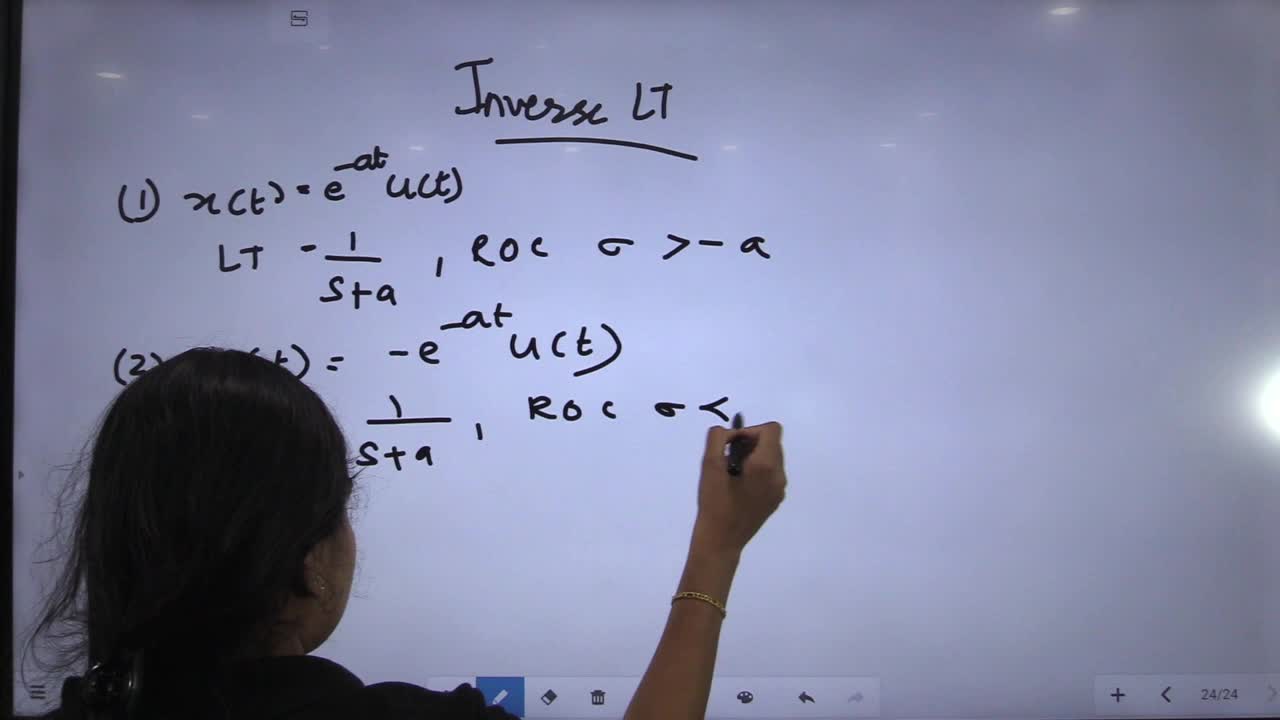 Inverse LT
(1) x(t) = e^-at u(t)
LT - 1/s+a , ROC σ > - a
(2) (t) = - e^-at u(t)
1/s+a , ROC σ <
24/24